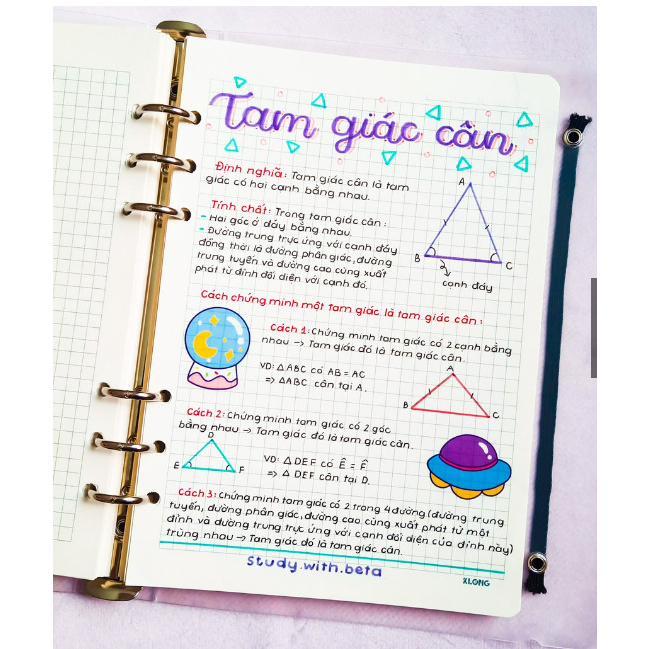 Tam giác cân
Định nghĩa: Tam giác cân là tam
giác có hai cạnh bằng nhau.
Tính chất: Trong tam giác cân:
- Hai góc ở đáy bằng nhau.
- Đường trung trực ứng với cạnh đáy
đồng thời là đường phân giác, đường
trung tuyến và đường cao cùng xuất
phát từ đỉnh đối diện với cạnh đó.
A
B
C
cạnh đáy
Cách chứng minh một tam giác là tam giác cân:
Cách 1: Chứng minh tam giác có 2 cạnh bằng
nhau → Tam giác đó là tam giác cân.
VD: △ABC có AB = AC
=> △ABC cân tại A.
A
B
C
Cách 2: Chứng minh tam giác có 2 góc
bằng nhau → Tam giác đó là tam giác cân.
D
E
F
VD: △DEF có Ê = F̂
=> △DEF cân tại D.
Cách 3: Chứng minh tam giác có 2 trong 4 đường (đường trung
tuyến, đường phân giác, đường cao cùng xuất phát từ một
đỉnh và đường trung trực ứng với cạnh đối diện của đỉnh này)
trùng nhau → Tam giác đó là tam giác cân.
study.with.beta
KLONG